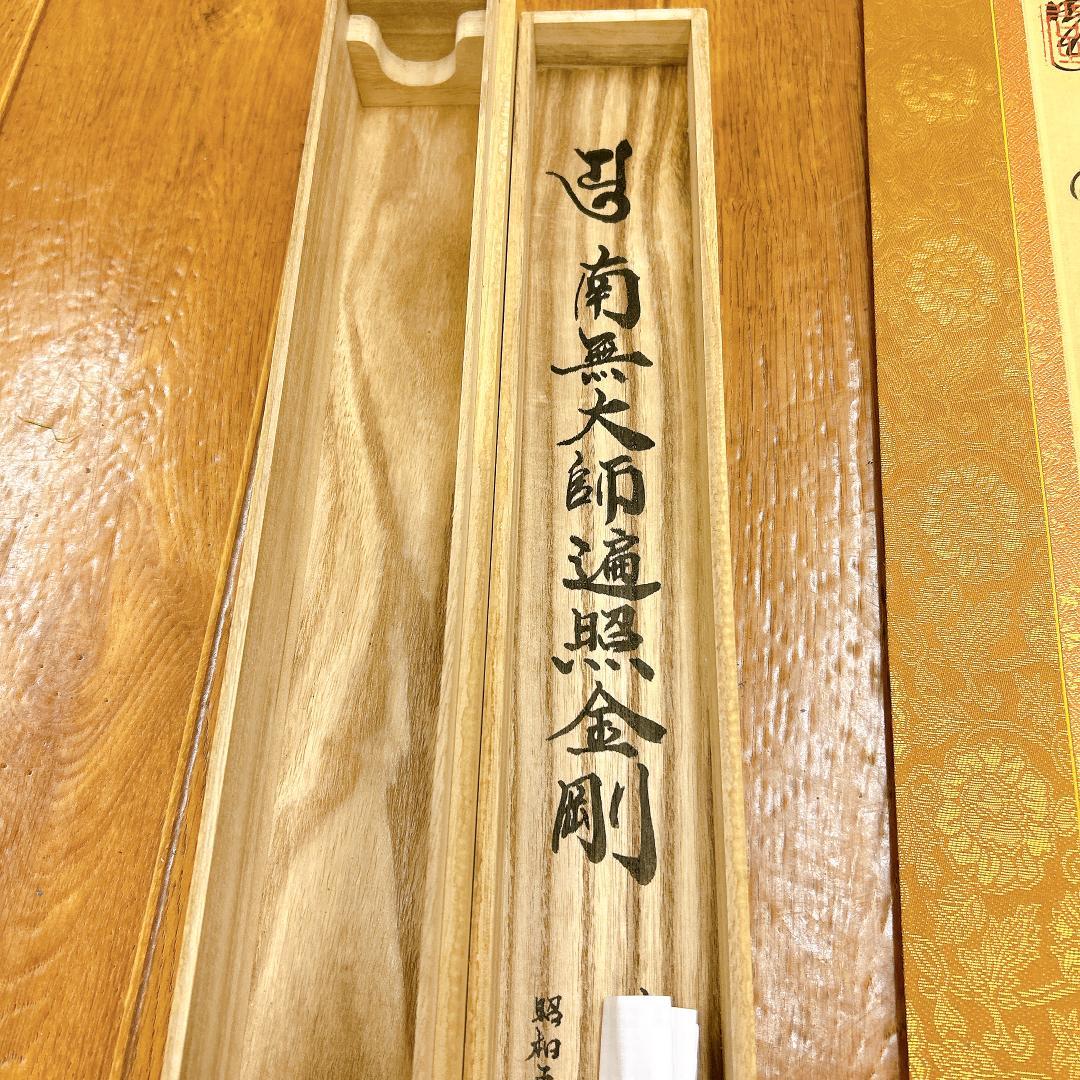 南無大師遍照金剛
昭和五